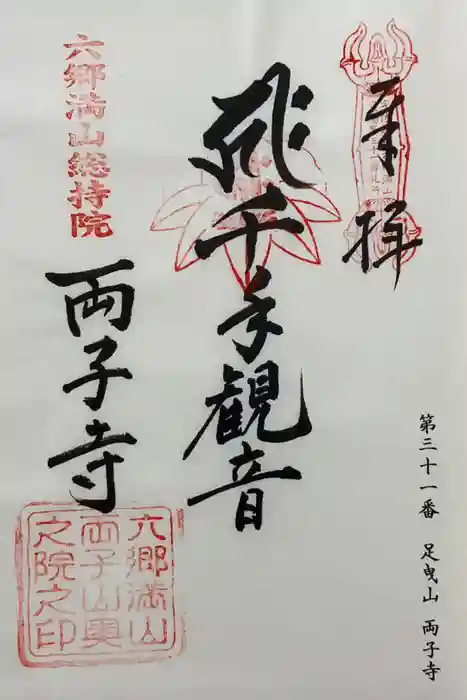 奉拝
千手観音
六郷満山総持院
両子寺
六郷満山
両子山興
之院之印
第三十一番 足曳山 両子寺